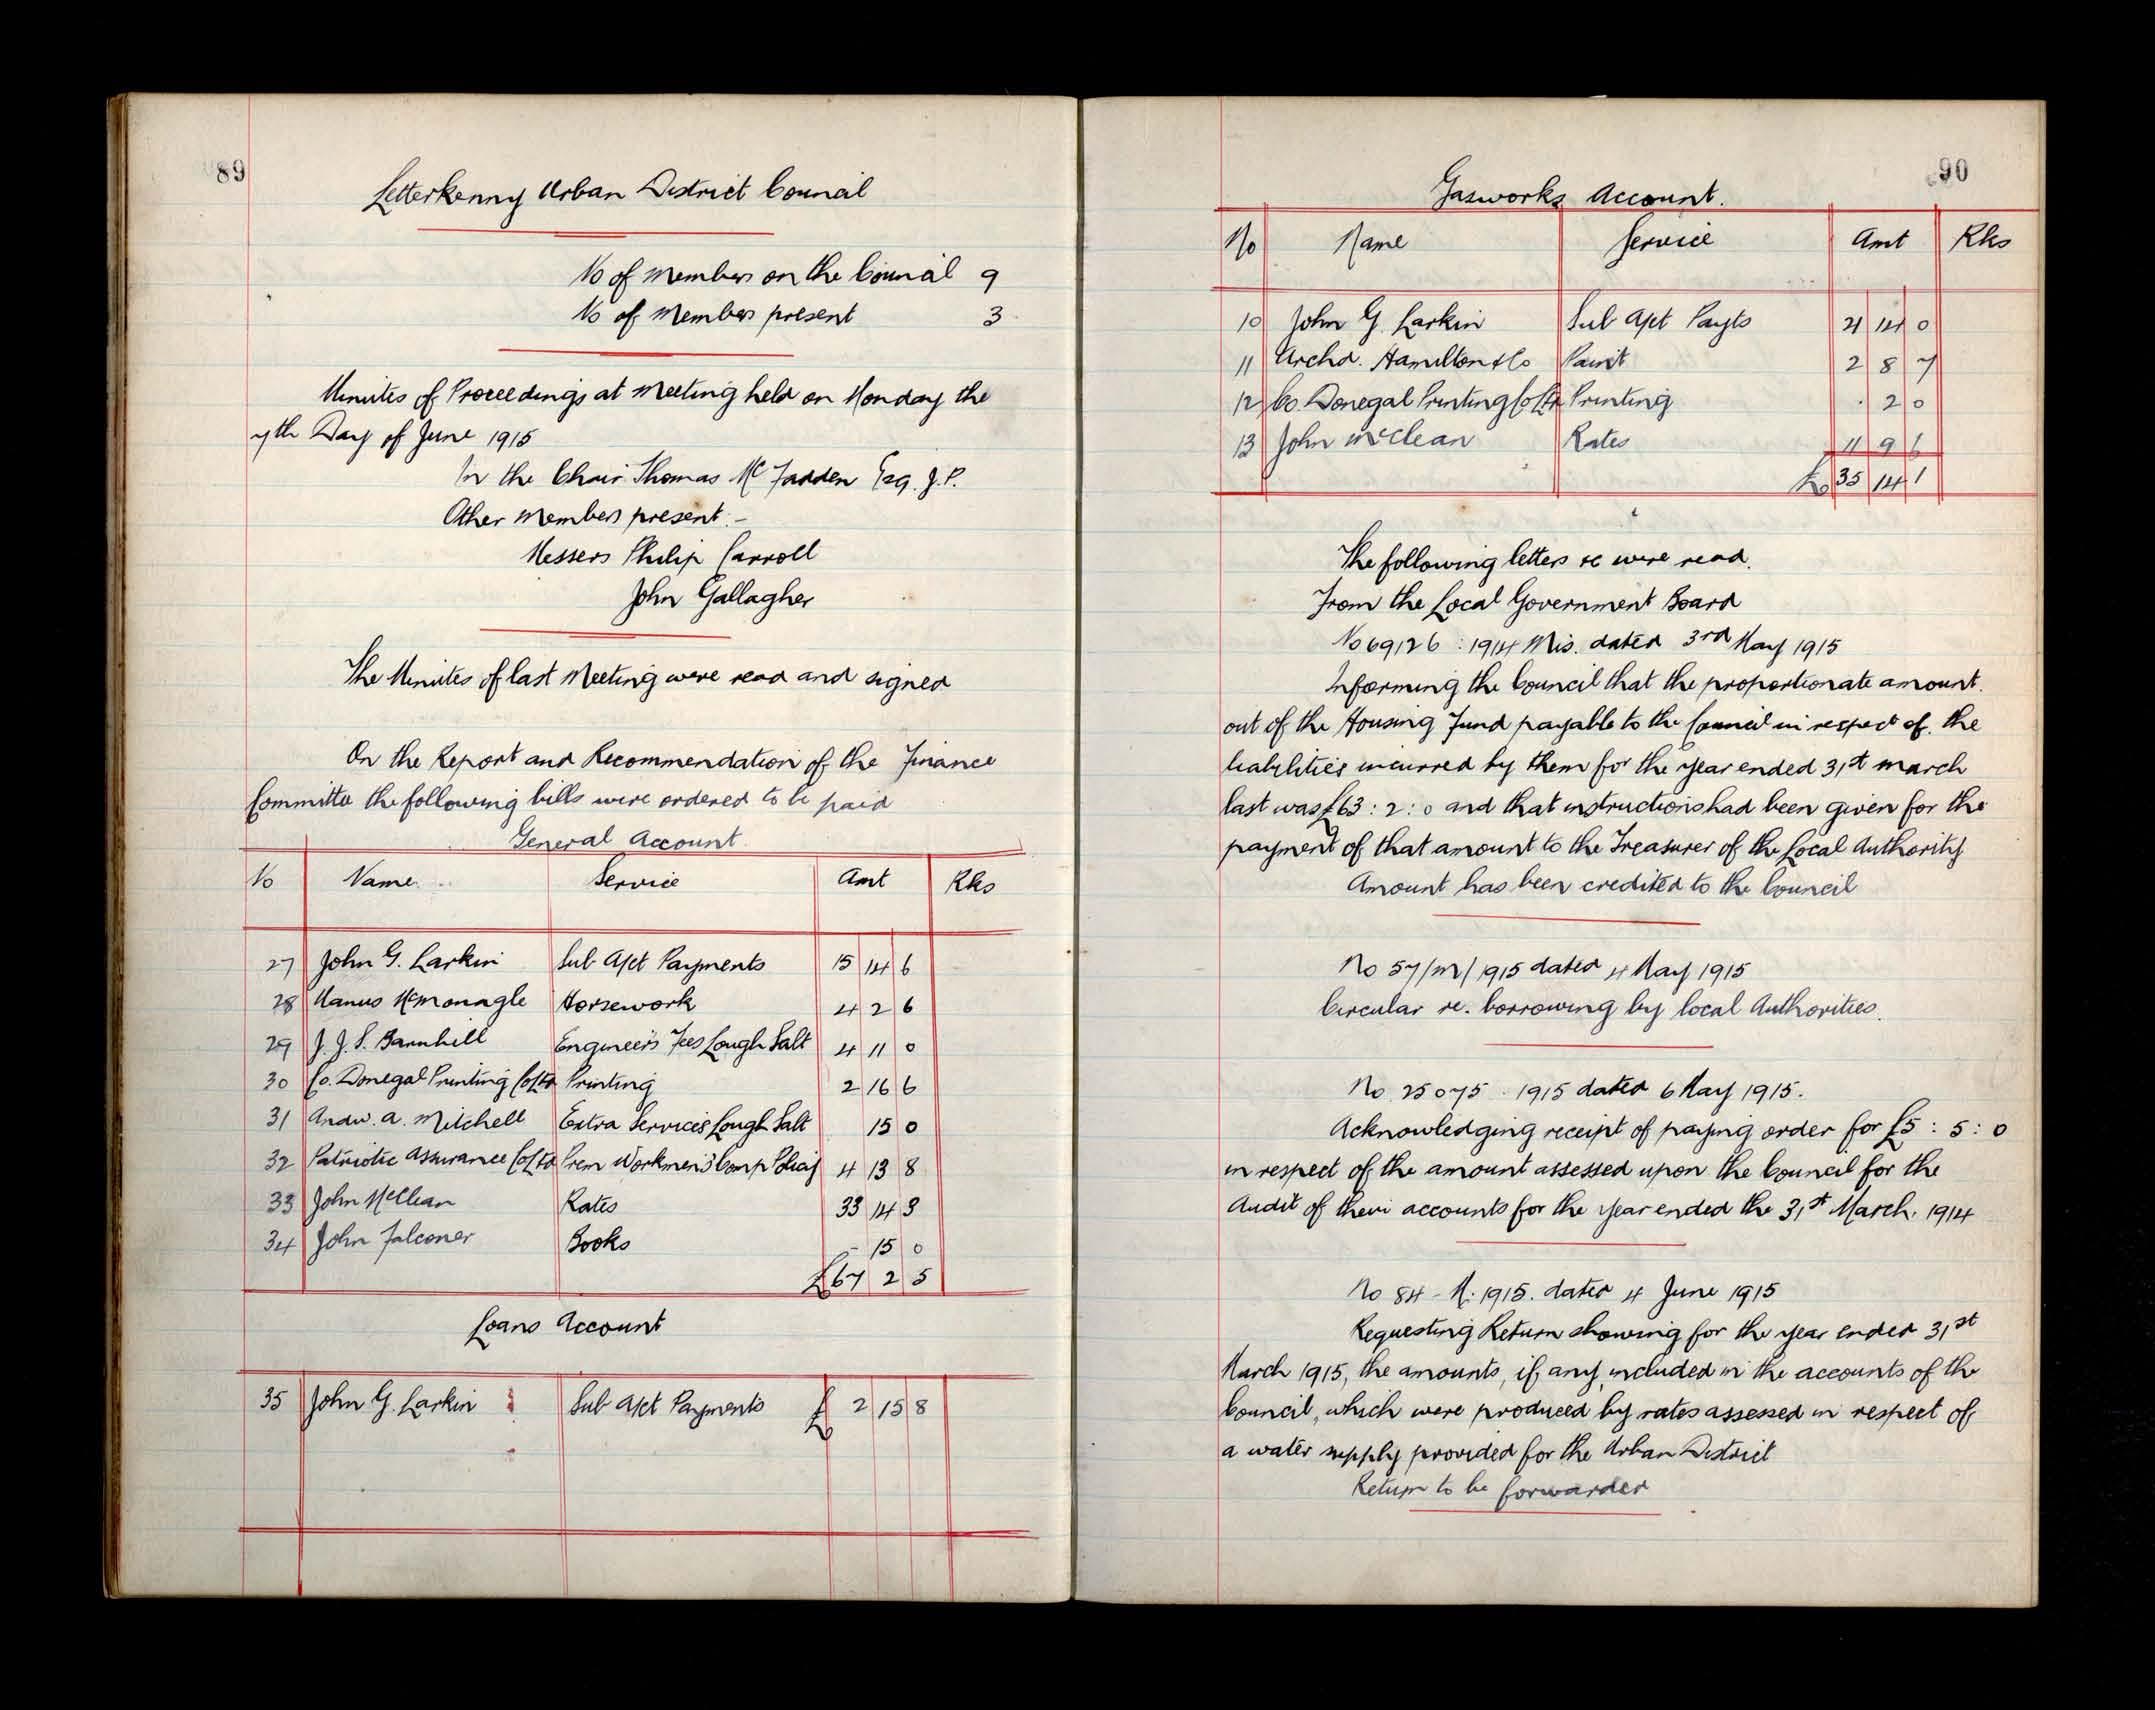 89
Letterkenny Urban District Council
No of members on the Council 9
No of members present 3
Minutes of Proceedings at Meeting held on Monday the
7th Day of June 1915
In the Chair Thomas McFadden Esq. J.P.
Other members present:-
Messers Philip Carroll
John Gallagher
The Minutes of last Meeting were read and signed
On the Report and Recommendation of the Finance
Committee the following bills were ordered to be paid
General Account
No Name Service Amt Rks
27 John G. Larkin Sub A/ct Payments 15 14 6
28 Manus McMonagle Horsework 4 2 6
29 J. J. S. Barnhill Engineer's Fees Lough Salt 4 11 0
30 Co. Donegal Printing Co Ltd Printing 2 16 6
31 Andw. A. Mitchell Extra Services Lough Salt 15 0
32 Patriotic Assurance Co Ltd Prem Workmen's Comp Policy 4 13 8
33 John McClean Rates 33 14 3
34 John Falconer Books - 15 0
£67 2 5
Loans Account
35 John G. Larkin Sub A/ct Payments £ 2 15 8
90
Gasworks Account.
No Name Service Amt Rks
10 John G. Larkin Sub A/ct Payts 21 14 0
11 Archd. Hamilton & Co Paint 2 8 7
12 Co. Donegal Printing Co Ltd Printing . 2 0
13 John McClean Rates 11 9 6
£ 35 14 1
The following letters &c were read.
From the Local Government Board
No 69126 : 1914 Mis. dated 3rd May 1915
Informing the Council that the proportionate amount.
out of the Housing Fund payable to the Council in respect of the
liabilities incurred by them for the year ended 31st March
last was £63 : 2 : 0 and that instructions had been given for the
payment of that amount to the Treasurer of the Local Authority
Amount has been credited to the Council
No 57/M/1915 dated 4 May 1915
Circular re. borrowing by local Authorities.
No 25075 . 1915 dated 6 May 1915.
Acknowledging receipt of paying order for £5 : 5 : 0
in respect of the amount assessed upon the Council for the
Audit of their accounts for the year ended the 31st March, 1914
No 84 - M. 1915. dated 4 June 1915
Requesting Return showing for the year ended 31st
March 1915, the amounts, if any, included in the accounts of the
Council, which were produced by rates assessed in respect of
a water supply provided for the Urban District
Return to be forwarded